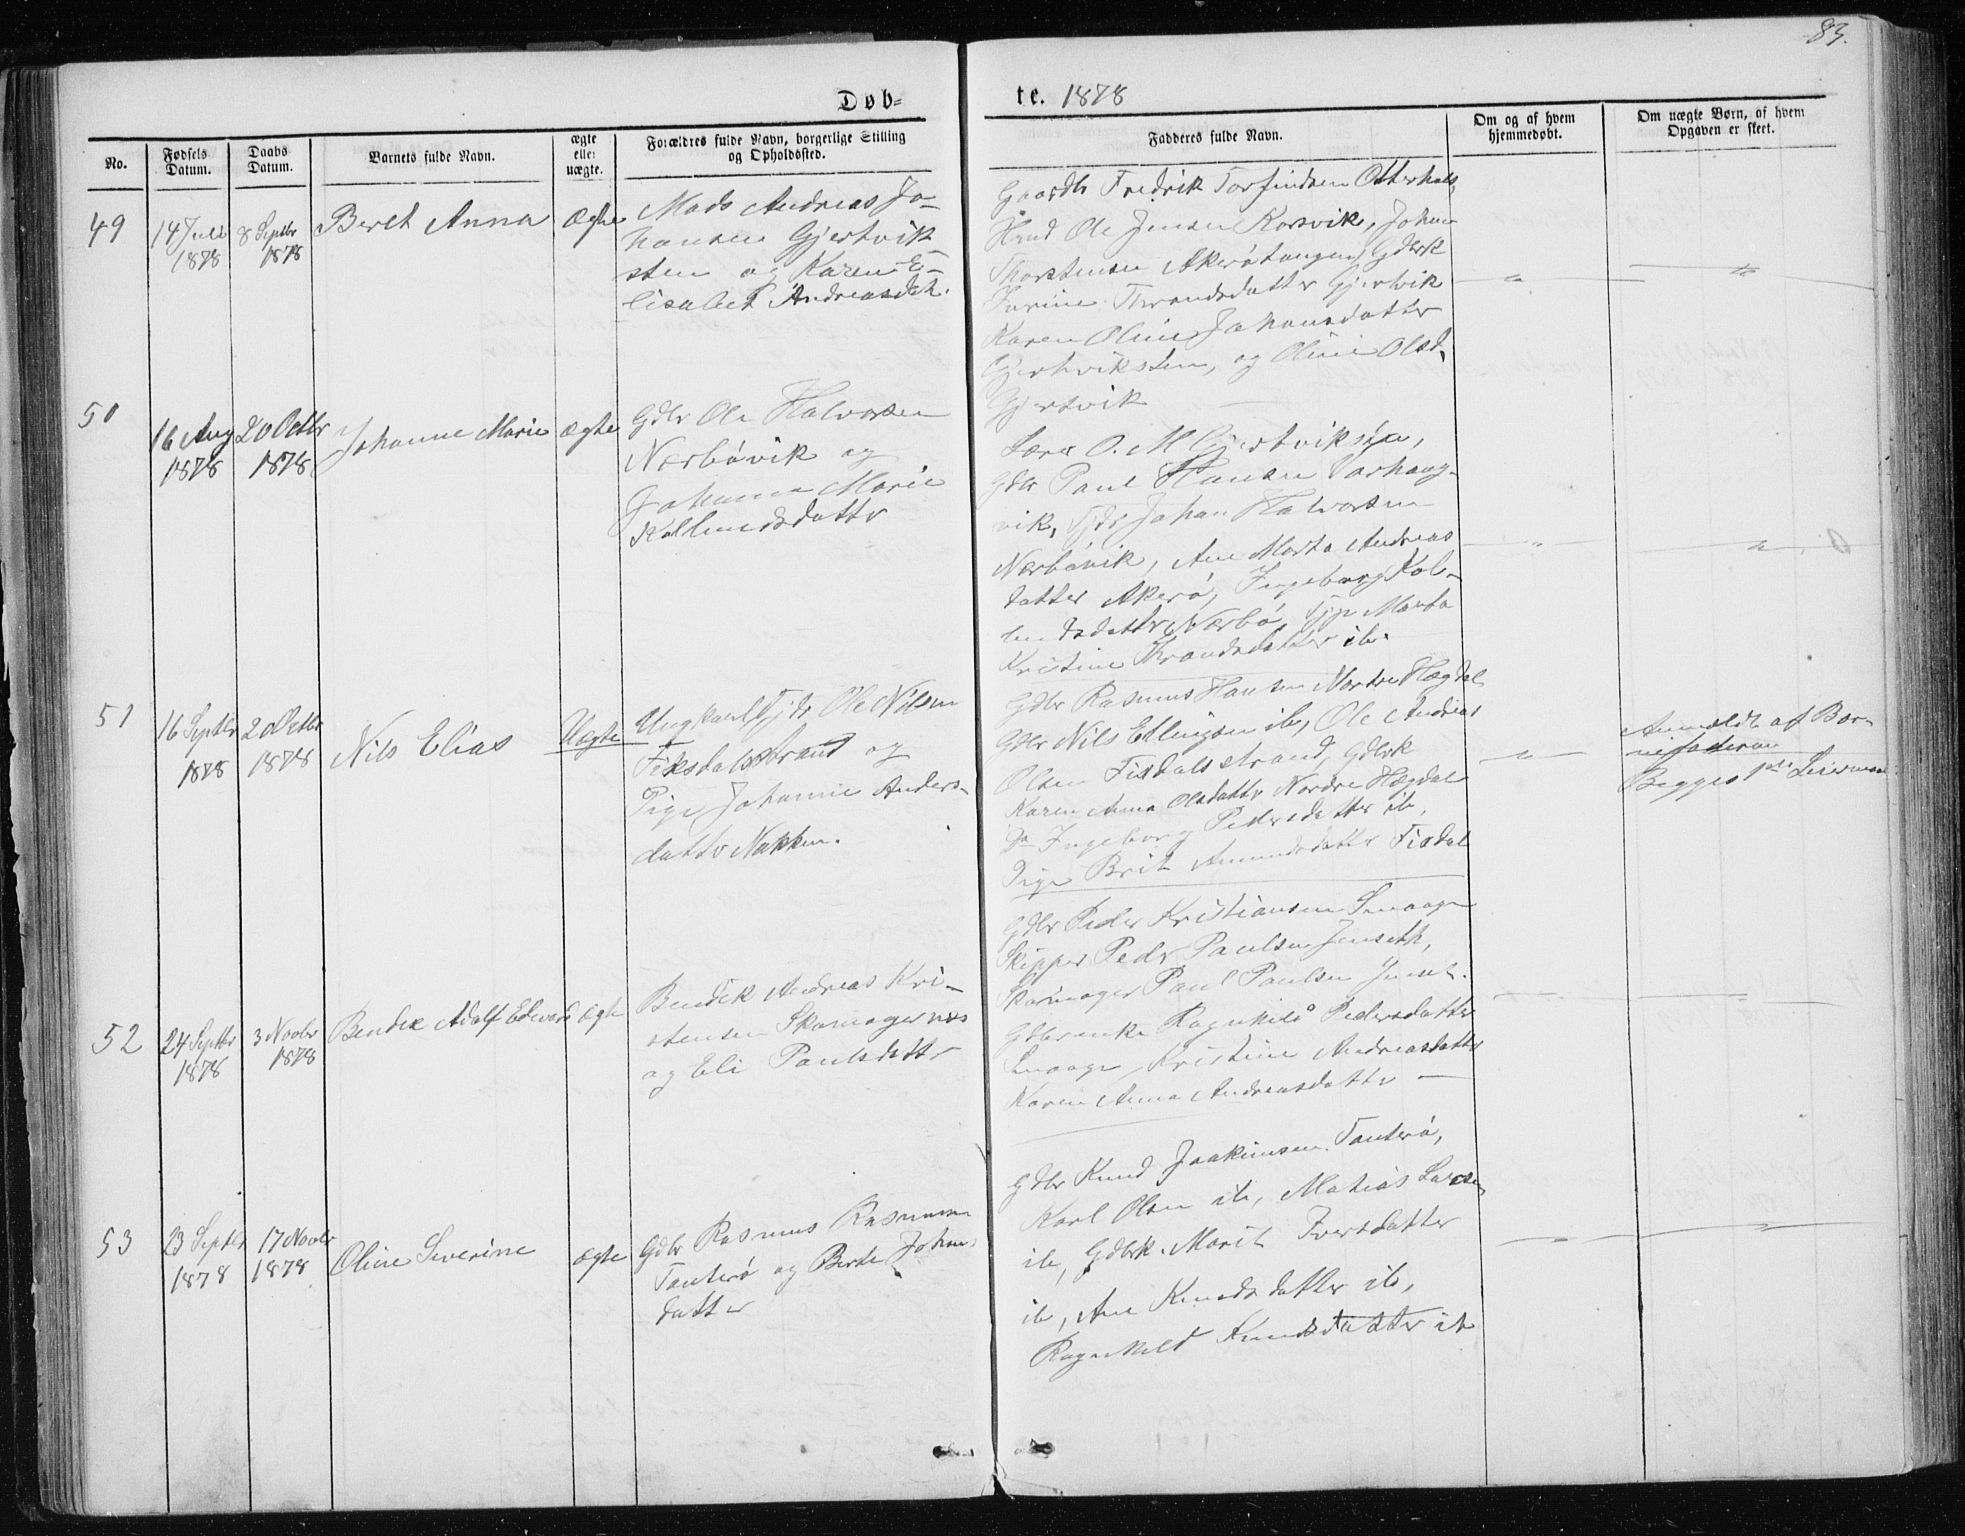 83.
Døb=
te. 1878
No.
Fødsels
Datum.
Daabs
Datum.
Barnets fulde Navn.
ægte
eller
uægte.
Forældres fulde Navn, borgerlige Stilling
og Opholdssted.
Fadderes fulde Navn.
Om og af hvem
hjemmedøbt.
Om uægte Børn, af hvem
Opgaven er skeet.
49
14 Juli
1878
8 Septbr
1878
Beret Anna
Ægte
Mads Andreas Jo-
hansen Gjertvik-
sten og Karen E-
lisabet Andreasdat.
Gaardbr Fredrik Torfindsen Otterhals
Hmd Ole Jensen Korsvik, Johan
Thorstensen Akerøtangen, Gdbrk
Throndsdatter Gjertvik
Karen Oline Johansdatter
Gjertviksten, og Oline Olsd.
Gjertvik
"
"
50
16 Aug
1878
20 Octbr
1878
Johanne Marie
ægte
Gdbr Ole Halvorsen
Nærbøvik og
Johanna Marie
Kolbendsdattr
Lærer O. M Gjertviksten,
Gdbr Paul Hansen Varhaug-
vik, Tjdr Johan Halvorsen
Nærbøvik, Ane Marta Andreas
datter Akerø, Ingeborg Kol-
bendsdattr Nærbø, Tjp Marta
Kristine Throndsdatter ib.
"
"
51
16 Septbr
1878
20 Octbr
1878
Nils Elias
Uægte
Ungkarl Tjdr Ole Nilsen
Fiksdalsstrand og
Pige Johanne Anders-
dattr Nakken.
Gdbr Rasmus Hansen Nordre Hægdal
Gdbr Nils Ellingsen ib, Ole Andreas
Olsen Fisdalsstrand, Gdbrk
Karen Anna Olsdattr Nordre Hægdal
Do Ingeborg Pedersdatter ib,
Pige Brit Amundsdatter Fisdal
"
Anmeldt af Bar-
nefaderen
Begges 1ste Leiermaal
52
24 Septbr
1878
3 Novbr
1878
Bendik Adolf Edvard
ægte
Bendik Andreas Kri-
stensen Skomager næs
og Eli Paulsdattr
Gdbr Peder Kristiansen Smaage
Skipper Pedr Paulsen Jenseth,
Skomager Paul Paulsen Jenset.
Gdbrenke Ragnhild Pedersdatter
Smaage, Kristine Andreasdattr
Karen Anna Andreasdattr
"
"
53
23 Septbr
1878
17 Novbr
1878
Oline Severine
ægte
Gdbr Rasmus Rasmussen
Tanterø og Berte Johan-
datter
Gdbr Knud Joakimsen Tanterø,
Karl Olsen ib, Matias Larsen
ib, Gdbrk. Marit Iversdatter
ib, Ane Knudsdatter ib,
Ragnhild Knudsdatter ib
"
"